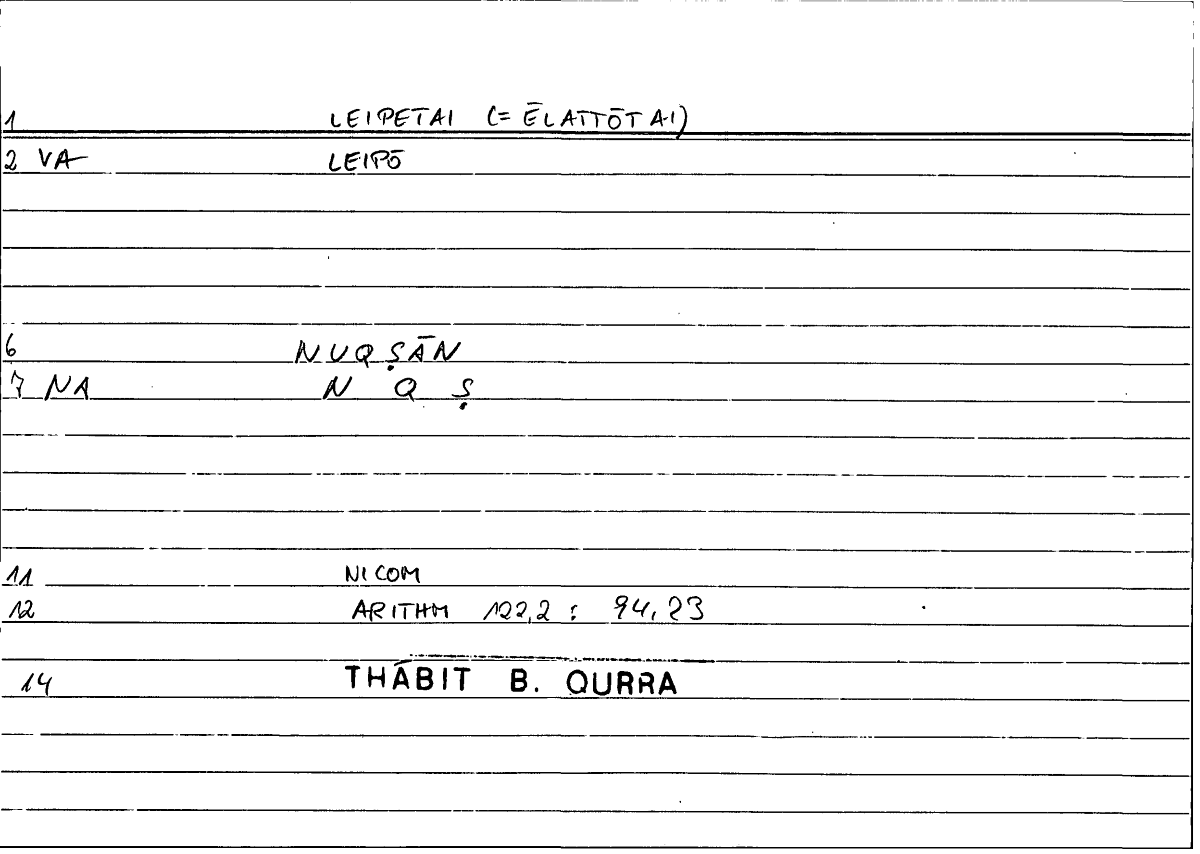 1 LEIPETAI (= ĒLATTŌTAI)
2 VA LEIPŌ
6 NUQṢĀN
7 NA N Q Ṣ
11 NICOM
12 ARITHM 122,2 : 94,23
14 THĀBIT B. QURRA